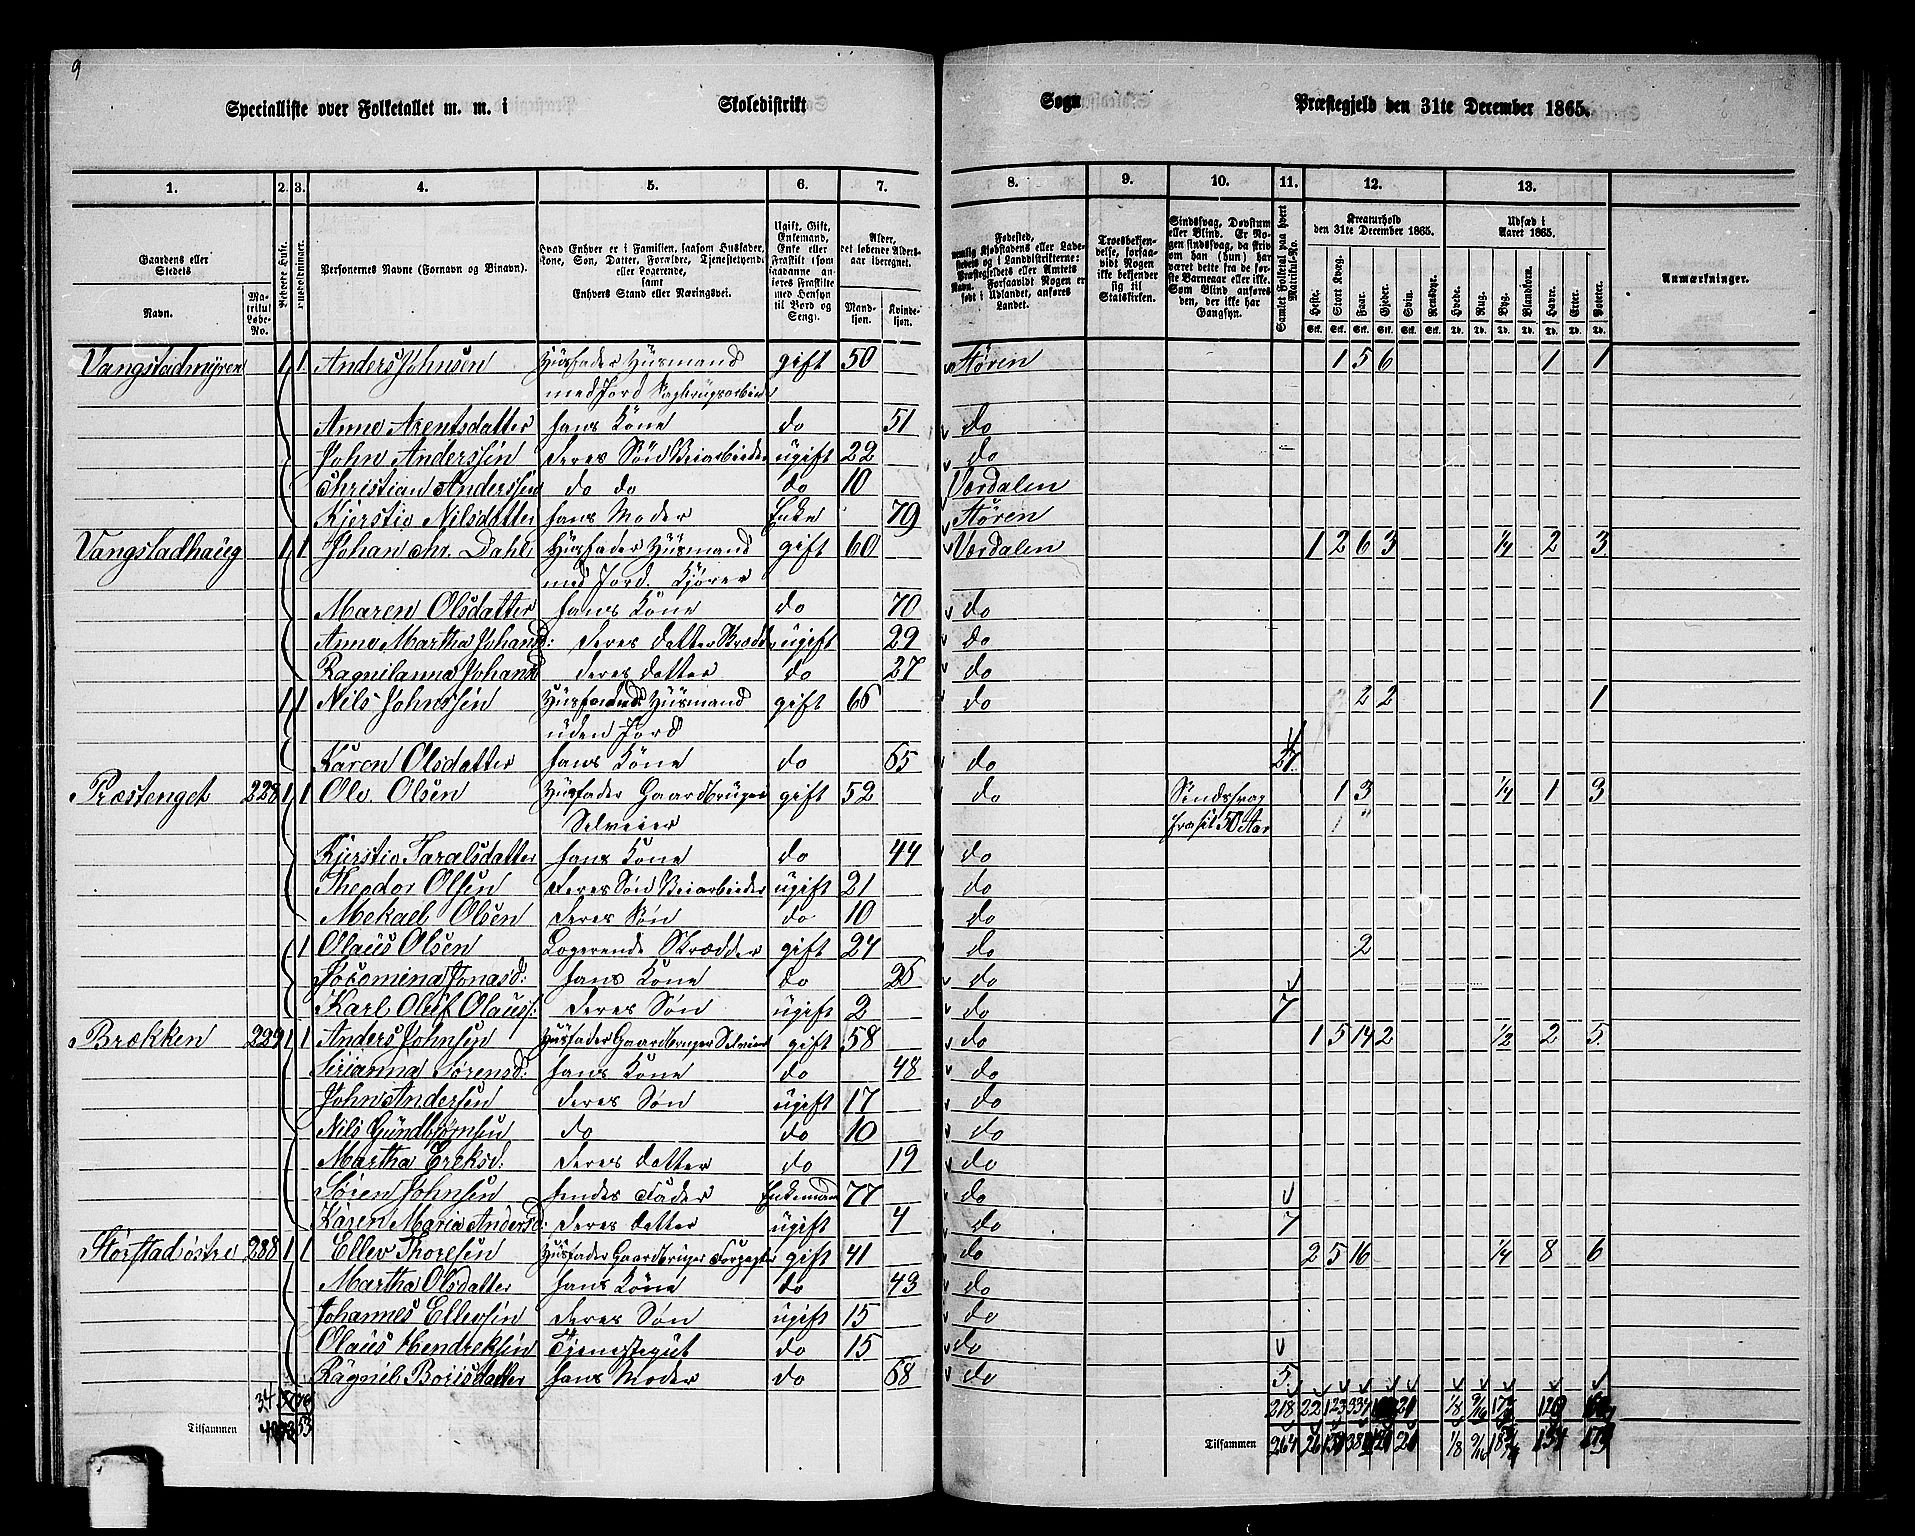 9
Specialliste over Folketallet m. m. i Skoledistrikt Sogn Præstegjeld den 31te December 1865.
1. 2. 3. 4. 5. 6. 7. 8. 9. 10. 11. 12. 13.
Gaardens eller Stedets
Navn. Matrikul Løbe-No.
Beboede Huse.
Husholdninger.
Personernes Navne (Fornavn og Binavn).
Hvad Enhver er i Familien, saasom Husfader, Kone, Søn, Datter, Forældre, Tjenestetyende eller Logerende, samt Enhvers Stand eller Næringsvei.
Ugift, Gift, Enkemand, Enke eller Fraskilt
Alder, det løbende Aldersaar iberegnet.
Mandkjøn. Kvindekjøn.
Fødested,
Troesbekjendelse, forsaavidt Nogen ikke bekjender sig til Statskirken.
Sindssvag, Døvstum eller Blind.
Samlet Folketal paa hvert Matrikul-No.
Kreaturhold den 31te December 1865.
Heste. Stort Kvæg. Faar. Gjeder. Svin. Rensdyr.
Udsæd i Aaret 1865.
Hvede. Rug. Byg. Blandkorn. Havre. Erter. Poteter.
Anmærkninger.
Vangstadmyren 1 1 Anders Johnsen Husfader Husmand gift 50 Støren 1 5 6 1 1
med Jord Sagbrugsarbeider
Anne Arentsdatter hans Kone do 51 do
John Anderssen deres Søn Veiarbeider ugift 22 do
Christian Anderssen do do do 10 Værdalen
Kjerstie Nilsdatter hans Moder Enke 79 Støren
Vangstadhaug 1 1 Johan Chr. Dahl Husfader Husmand gift 60 Værdalen 1 2 6 3 1/4 2 3
med Jord. Kjører
Maren Olsdatter hans Kone do 70 do
Anne Martha Johansd: deres datter ugift 29 do
Ragnilanna Johansd deres datter do 27 do
1 1 Nils Johnssen Husfader Husmand gift 66 do 2 2 1
uden Jord
Karen Olsdatter hans Kone do 65 do
Præstenget 228 1 1 Ole Olsen Husfader Gaardbruger gift 52 do Sindssvag 1 3 1/4 1 3
Selveier fra sit 50 Aar
Kjerstie Taralsdatter hans Kone do 44 do
Theodor Olsen deres Søn Veiarbeider ugift 21 do
Mekael Olsen deres Søn do 10 do
1 Olaus Olsen Logerende Skrædder gift 24 do 2
Jocomina Jonasd: hans Kone do do
Karl Oluf Olauss: deres Søn ugift 2 do 7
Brækken 229 1 1 Anders Johnsen Husfader Gaardbruger Selveier gift 58 do 1 5 14 2 1/2 2 5
Sirianna Sørensd: hans Kone do 48 do
John Andersen deres Søn ugift 17 do
Nils Gundbjørnsen do do 10 do
Martha Ereksd: deres datter do 19 do
Søren Johnsen hendes Fader Enkemand 77 do
Karen Maria Andersd: deres datter ugift 4 do 7
Storstad østre 288 1 1 Ellev Thoresen Husfader Gaardbruger Forpagter gift 41 do 2 5 16 1/4 8 6
Martha Olsdatter hans Kone do 43 do
Johannes Ellevsen deres Søn ugift 15 do
Olaus Hendreksen Tjenestegut do 15 do
Ragnil Borisdatter hans Moder do 68 do 5
218 22 123 334 1/8 9/16
Tilsammen Tilsammen 264 26 1/8 9/16